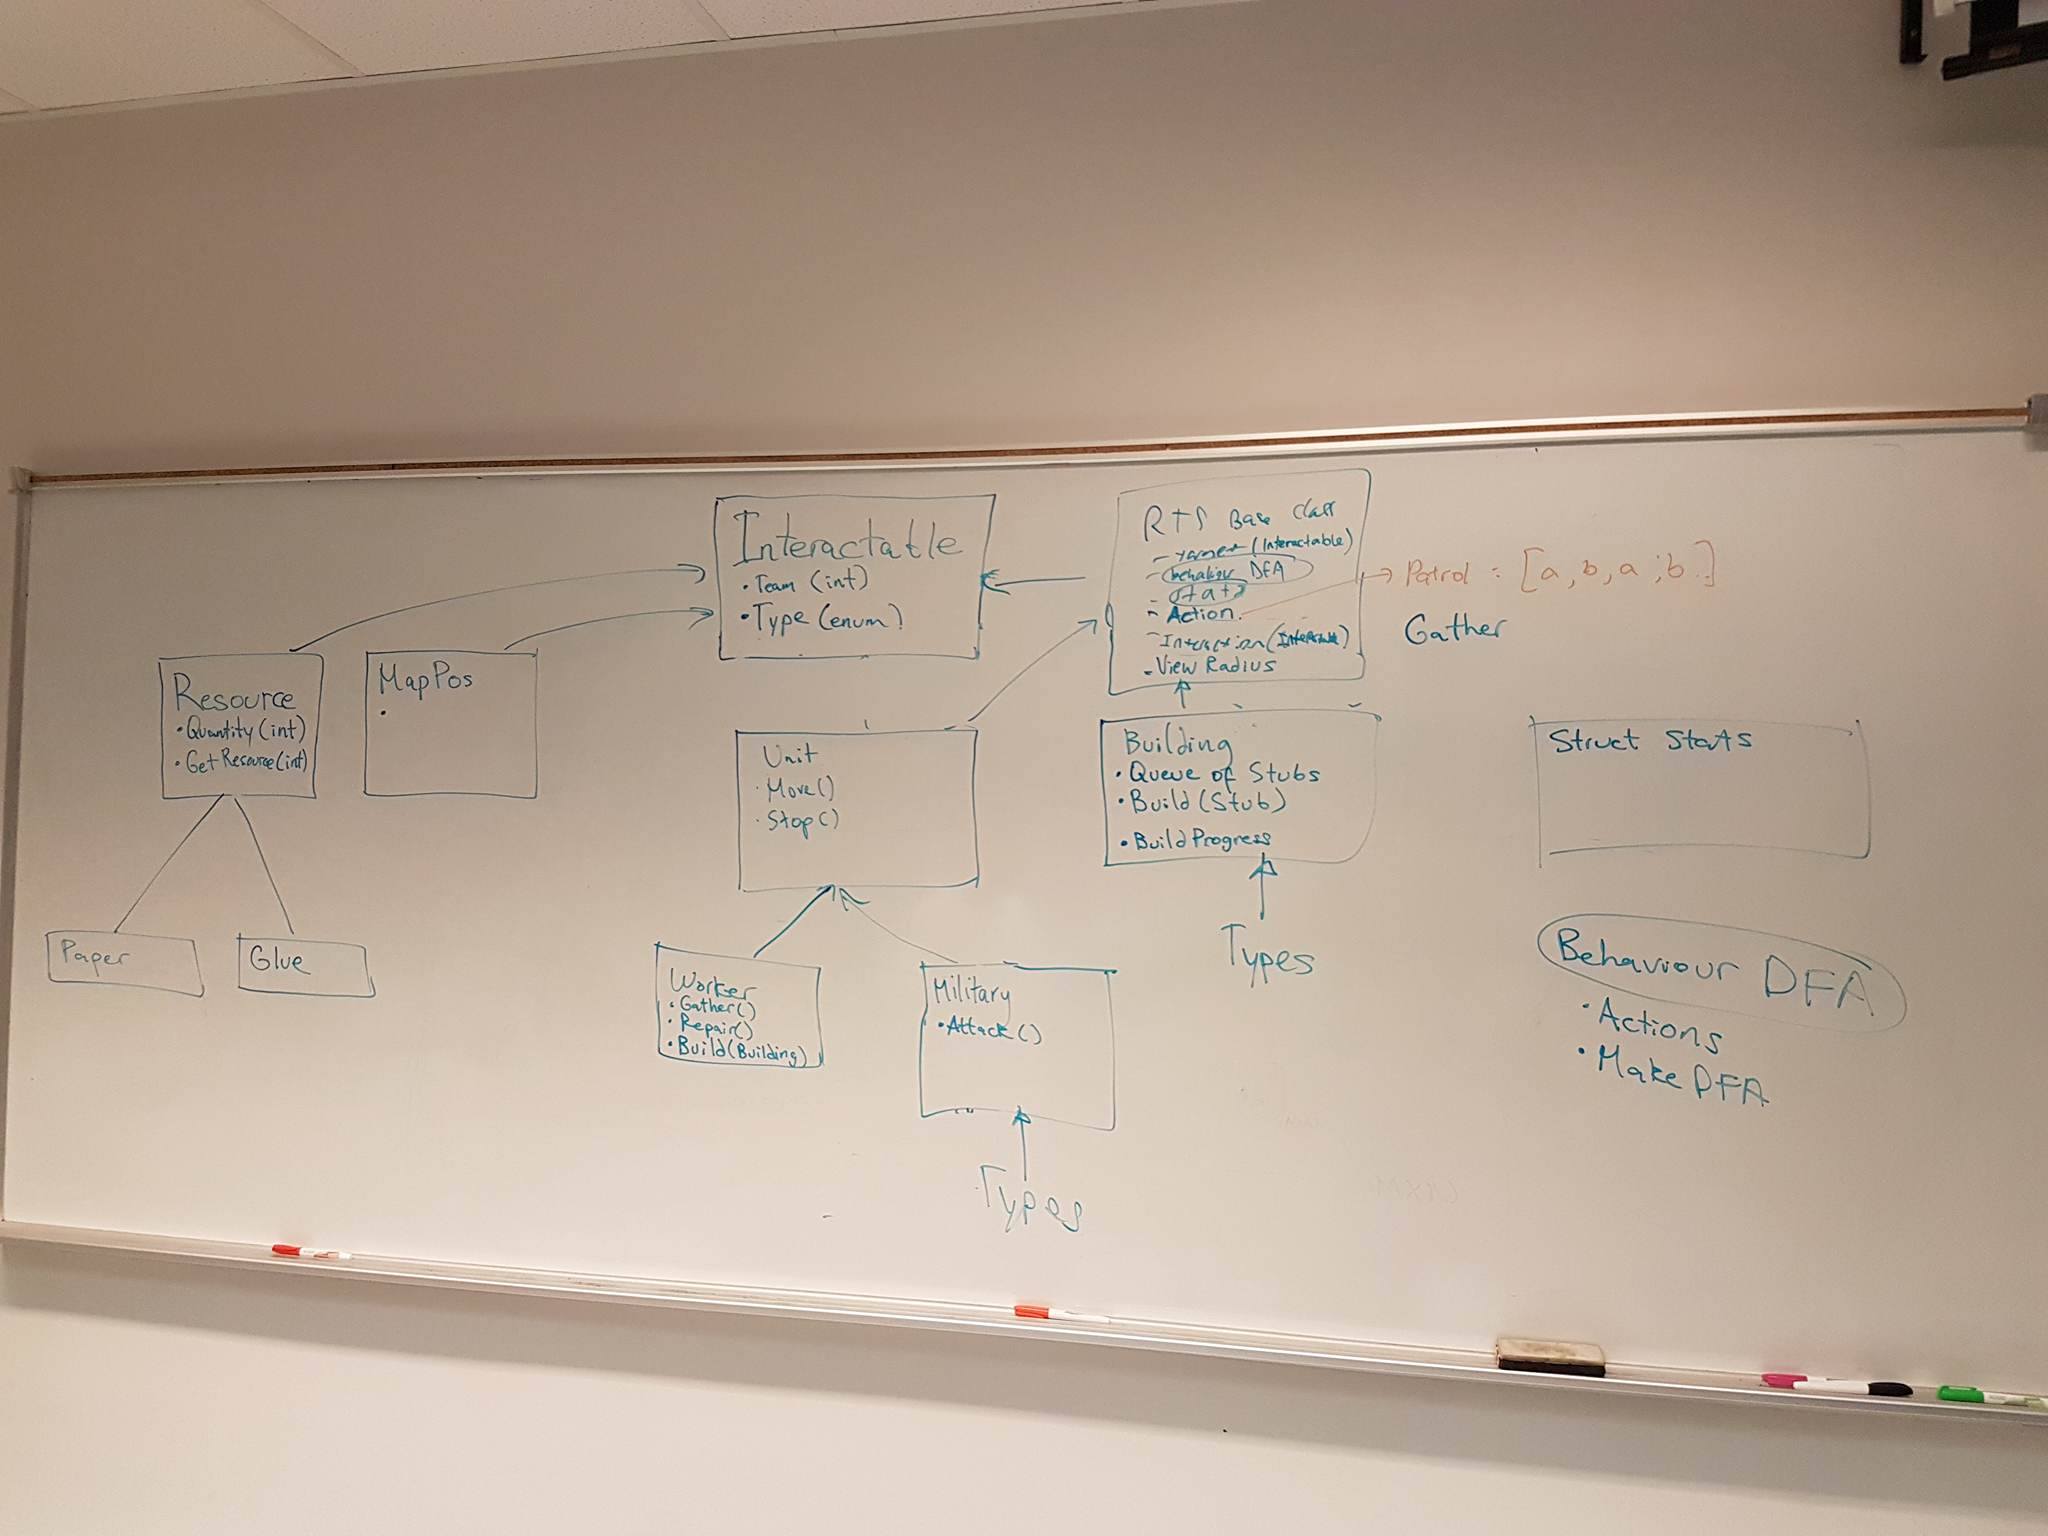 Interactable
• Team (int)
• Type (enum)
RTS Base Class
- target (Interactable)
- behaviour DFA
- stats
- Action
- Interaction (Interactable)
- View Radius
→ Patrol = [a, b, a, b..]
Gather
Resource
• Quantity (int)
• GetResource(int)
MapPos
•
Paper
Glue
Unit
• Move()
• Stop()
Building
• Queue of Stubs
• Build (Stub)
• Build Progress
Types
Worker
• Gather()
• Repair()
• Build (Building)
Military
• Attack()
Types
Struct Stats
Behaviour DFA
• Actions
• Make DFA